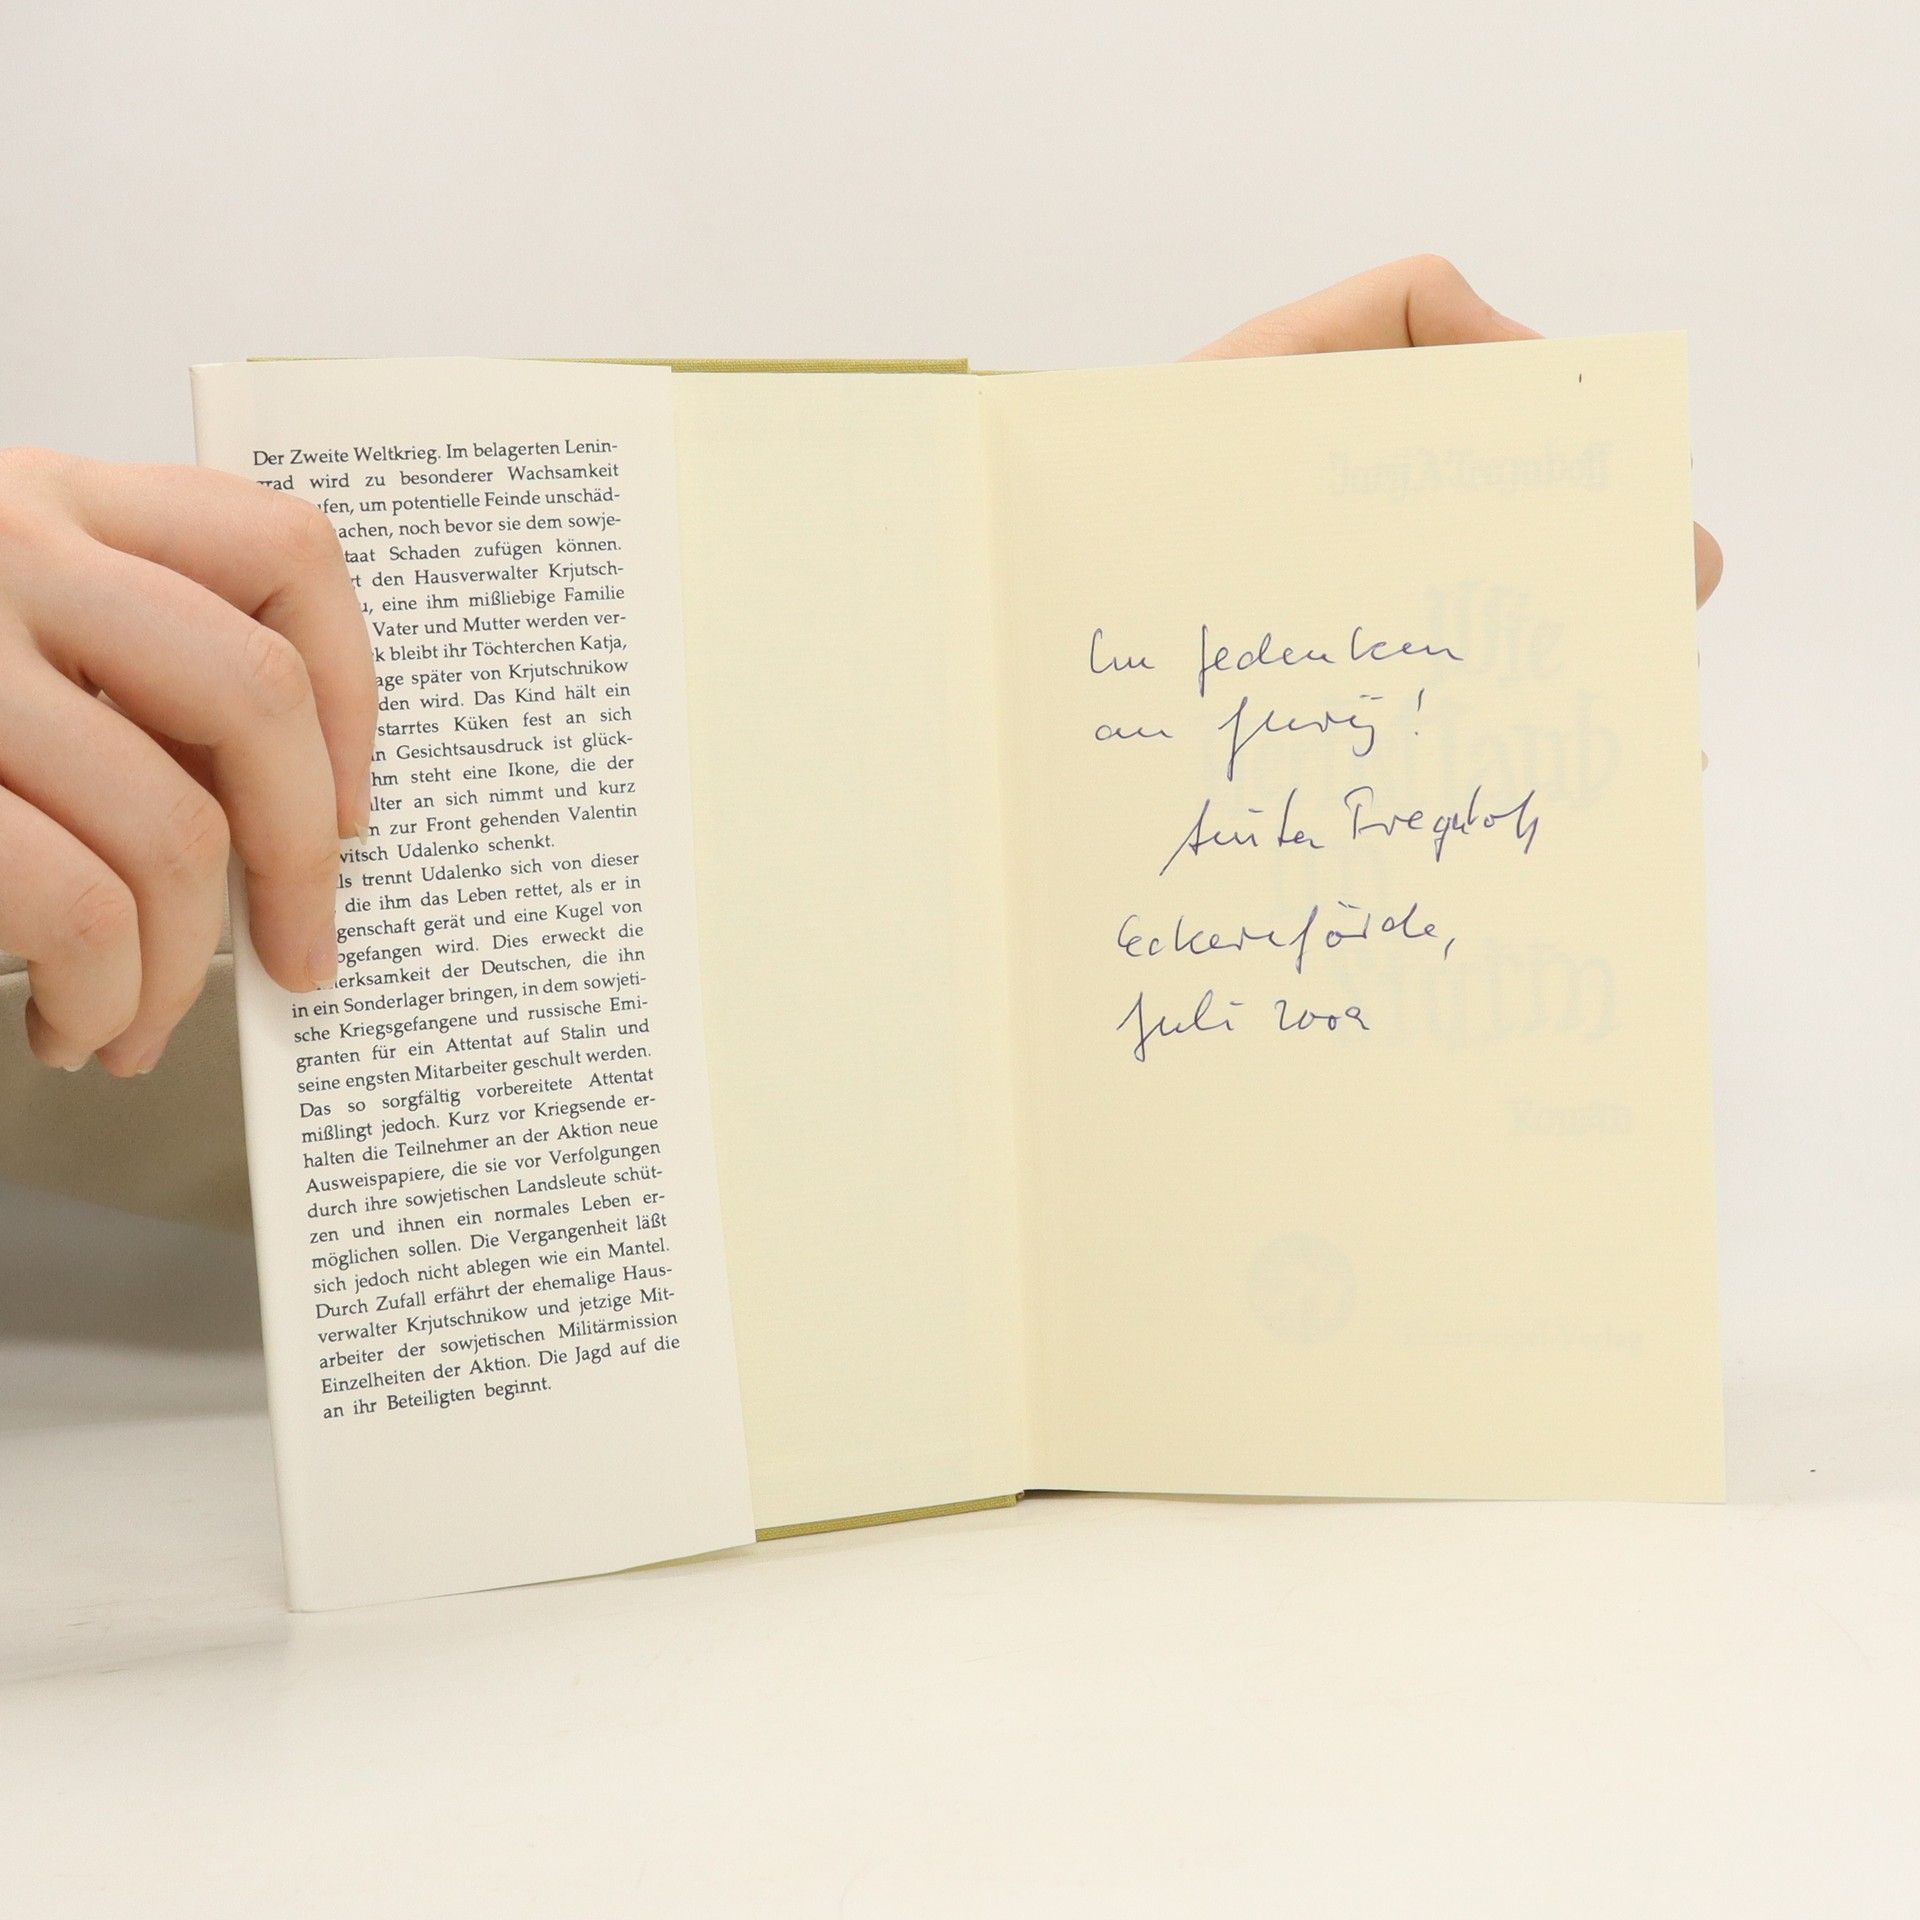 Der Zweite Weltkrieg. Im belagerten Lenin-
grad wird zu besonderer Wachsamkeit
ufen, um potentielle Feinde unschäd-
achen, noch bevor sie dem sowje-
taat Schaden zufügen können.
rt den Hausverwalter Krjutsch-
u, eine ihm mißliebige Familie
Vater und Mutter werden ver-
k bleibt ihr Töchterchen Katja,
age später von Krjutschnikow
den wird. Das Kind hält ein
starrtes Küken fest an sich
n Gesichtsausdruck ist glück-
hm steht eine Ikone, die der
lter an sich nimmt und kurz
m zur Front gehenden Valentin
witsch Udalenko schenkt.
ls trennt Udalenko sich von dieser
die ihm das Leben rettet, als er in
genschaft gerät und eine Kugel von
bgefangen wird. Dies erweckt die
merksamkeit der Deutschen, die ihn
in ein Sonderlager bringen, in dem sowjeti-
sche Kriegsgefangene und russische Emi-
granten für ein Attentat auf Stalin und
seine engsten Mitarbeiter geschult werden.
Das so sorgfältig vorbereitete Attentat
mißlingt jedoch. Kurz vor Kriegsende er-
halten die Teilnehmer an der Aktion neue
Ausweispapiere, die sie vor Verfolgungen
durch ihre sowjetischen Landsleute schüt-
zen und ihnen ein normales Leben er-
möglichen sollen. Die Vergangenheit läßt
sich jedoch nicht ablegen wie ein Mantel.
Durch Zufall erfährt der ehemalige Haus-
verwalter Krjutschnikow und jetzige Mit-
arbeiter der sowjetischen Militärmission
Einzelheiten der Aktion. Die Jagd auf die
an ihr Beteiligten beginnt.
Im Gedenken
an Jurij!
Eckernförde,
Juli 2002